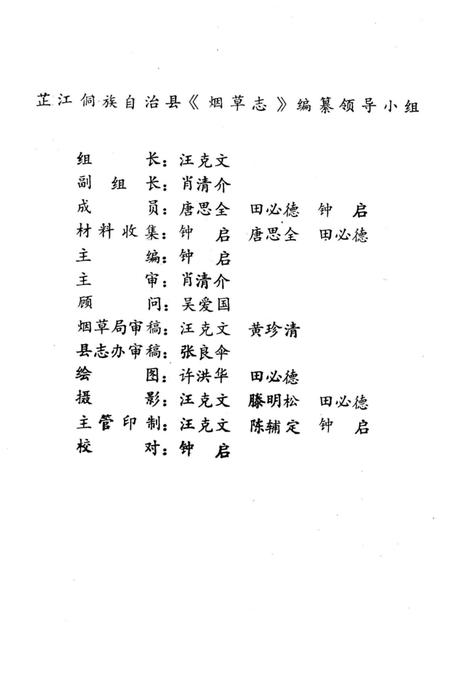 芷江侗族自治县《烟草志》编纂领导小组
组 长：汪克文
副 组 长：肖清介
成 员：唐思全 田必德 钟 启
材料收集：钟 启 唐思全 田必德
主 编：钟 启
主 审：肖清介
顾 问：吴爱国
烟草局审稿：汪克文 黄珍清
县志办审稿：张良伞
绘 图：许洪华 田必德
摄 影：汪克文 滕明松 田必德
主管印制：汪克文 陈辅定 钟 启
校 对：钟 启